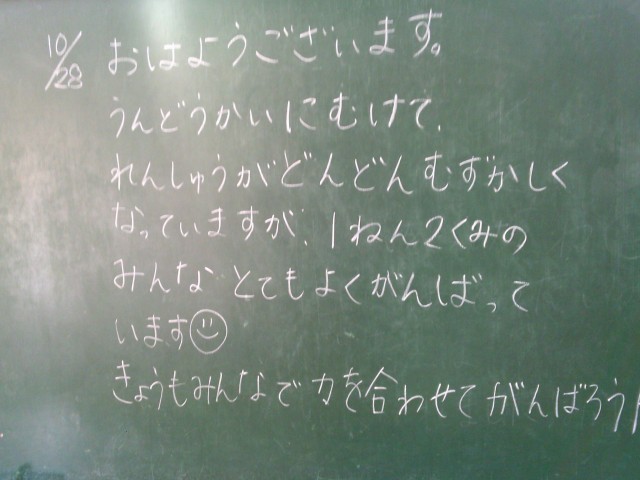 10/28 おはようございます。
うんどうかいにむけて、
れんしゅうがどんどんむずかしく
なっていますが、1ねん2くみの
みんなとてもよくがんばって
います
きょうもみんなで力を合わせてがんばろう!